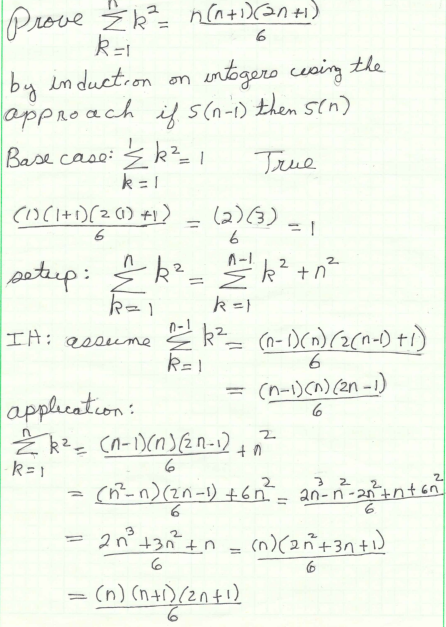 Prove n∑k=1 k² = n(n+1)(2n+1)/6
by induction on integers using the
approach if S(n-1) then S(n)
Base case: 1∑k=1 k² = 1 True
(1)(1+1)(2(1)+1)/6 = (2)(3)/6 = 1
setup: n∑k=1 k² = n-1∑k=1 k² + n²
IH: assume n-1∑k=1 k² = (n-1)(n)(2(n-1)+1)/6
= (n-1)(n)(2n-1)/6
application:
n∑k=1 k² = (n-1)(n)(2n-1)/6 + n²
= (n²-n)(2n-1)+6n²/6 = 2n³-n²-2n²+n+6n²/6
= 2n³+3n²+n/6 = (n)(2n²+3n+1)/6
= (n)(n+1)(2n+1)/6